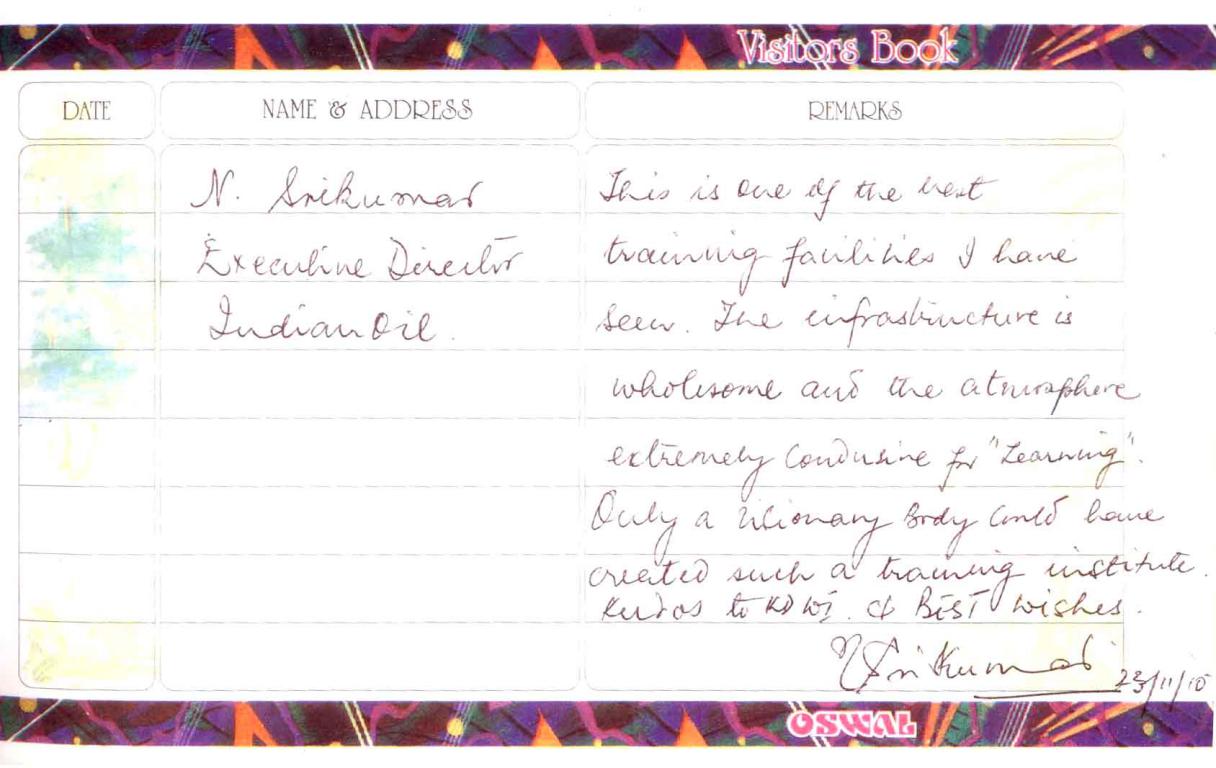 Visitors Book
DATE NAME & ADDRESS REMARKS
N. Srikumar
Executive Director
IndianOil.
This is one of the best
training facilities I have
seen. The infrastructure is
wholesome and the atmosphere
extremely condusive for "Learning".
Only a visionary Body could have
created such a training institute.
Kudos to & BEST wishes.
N Srikumar
23/11/10
OSWAL